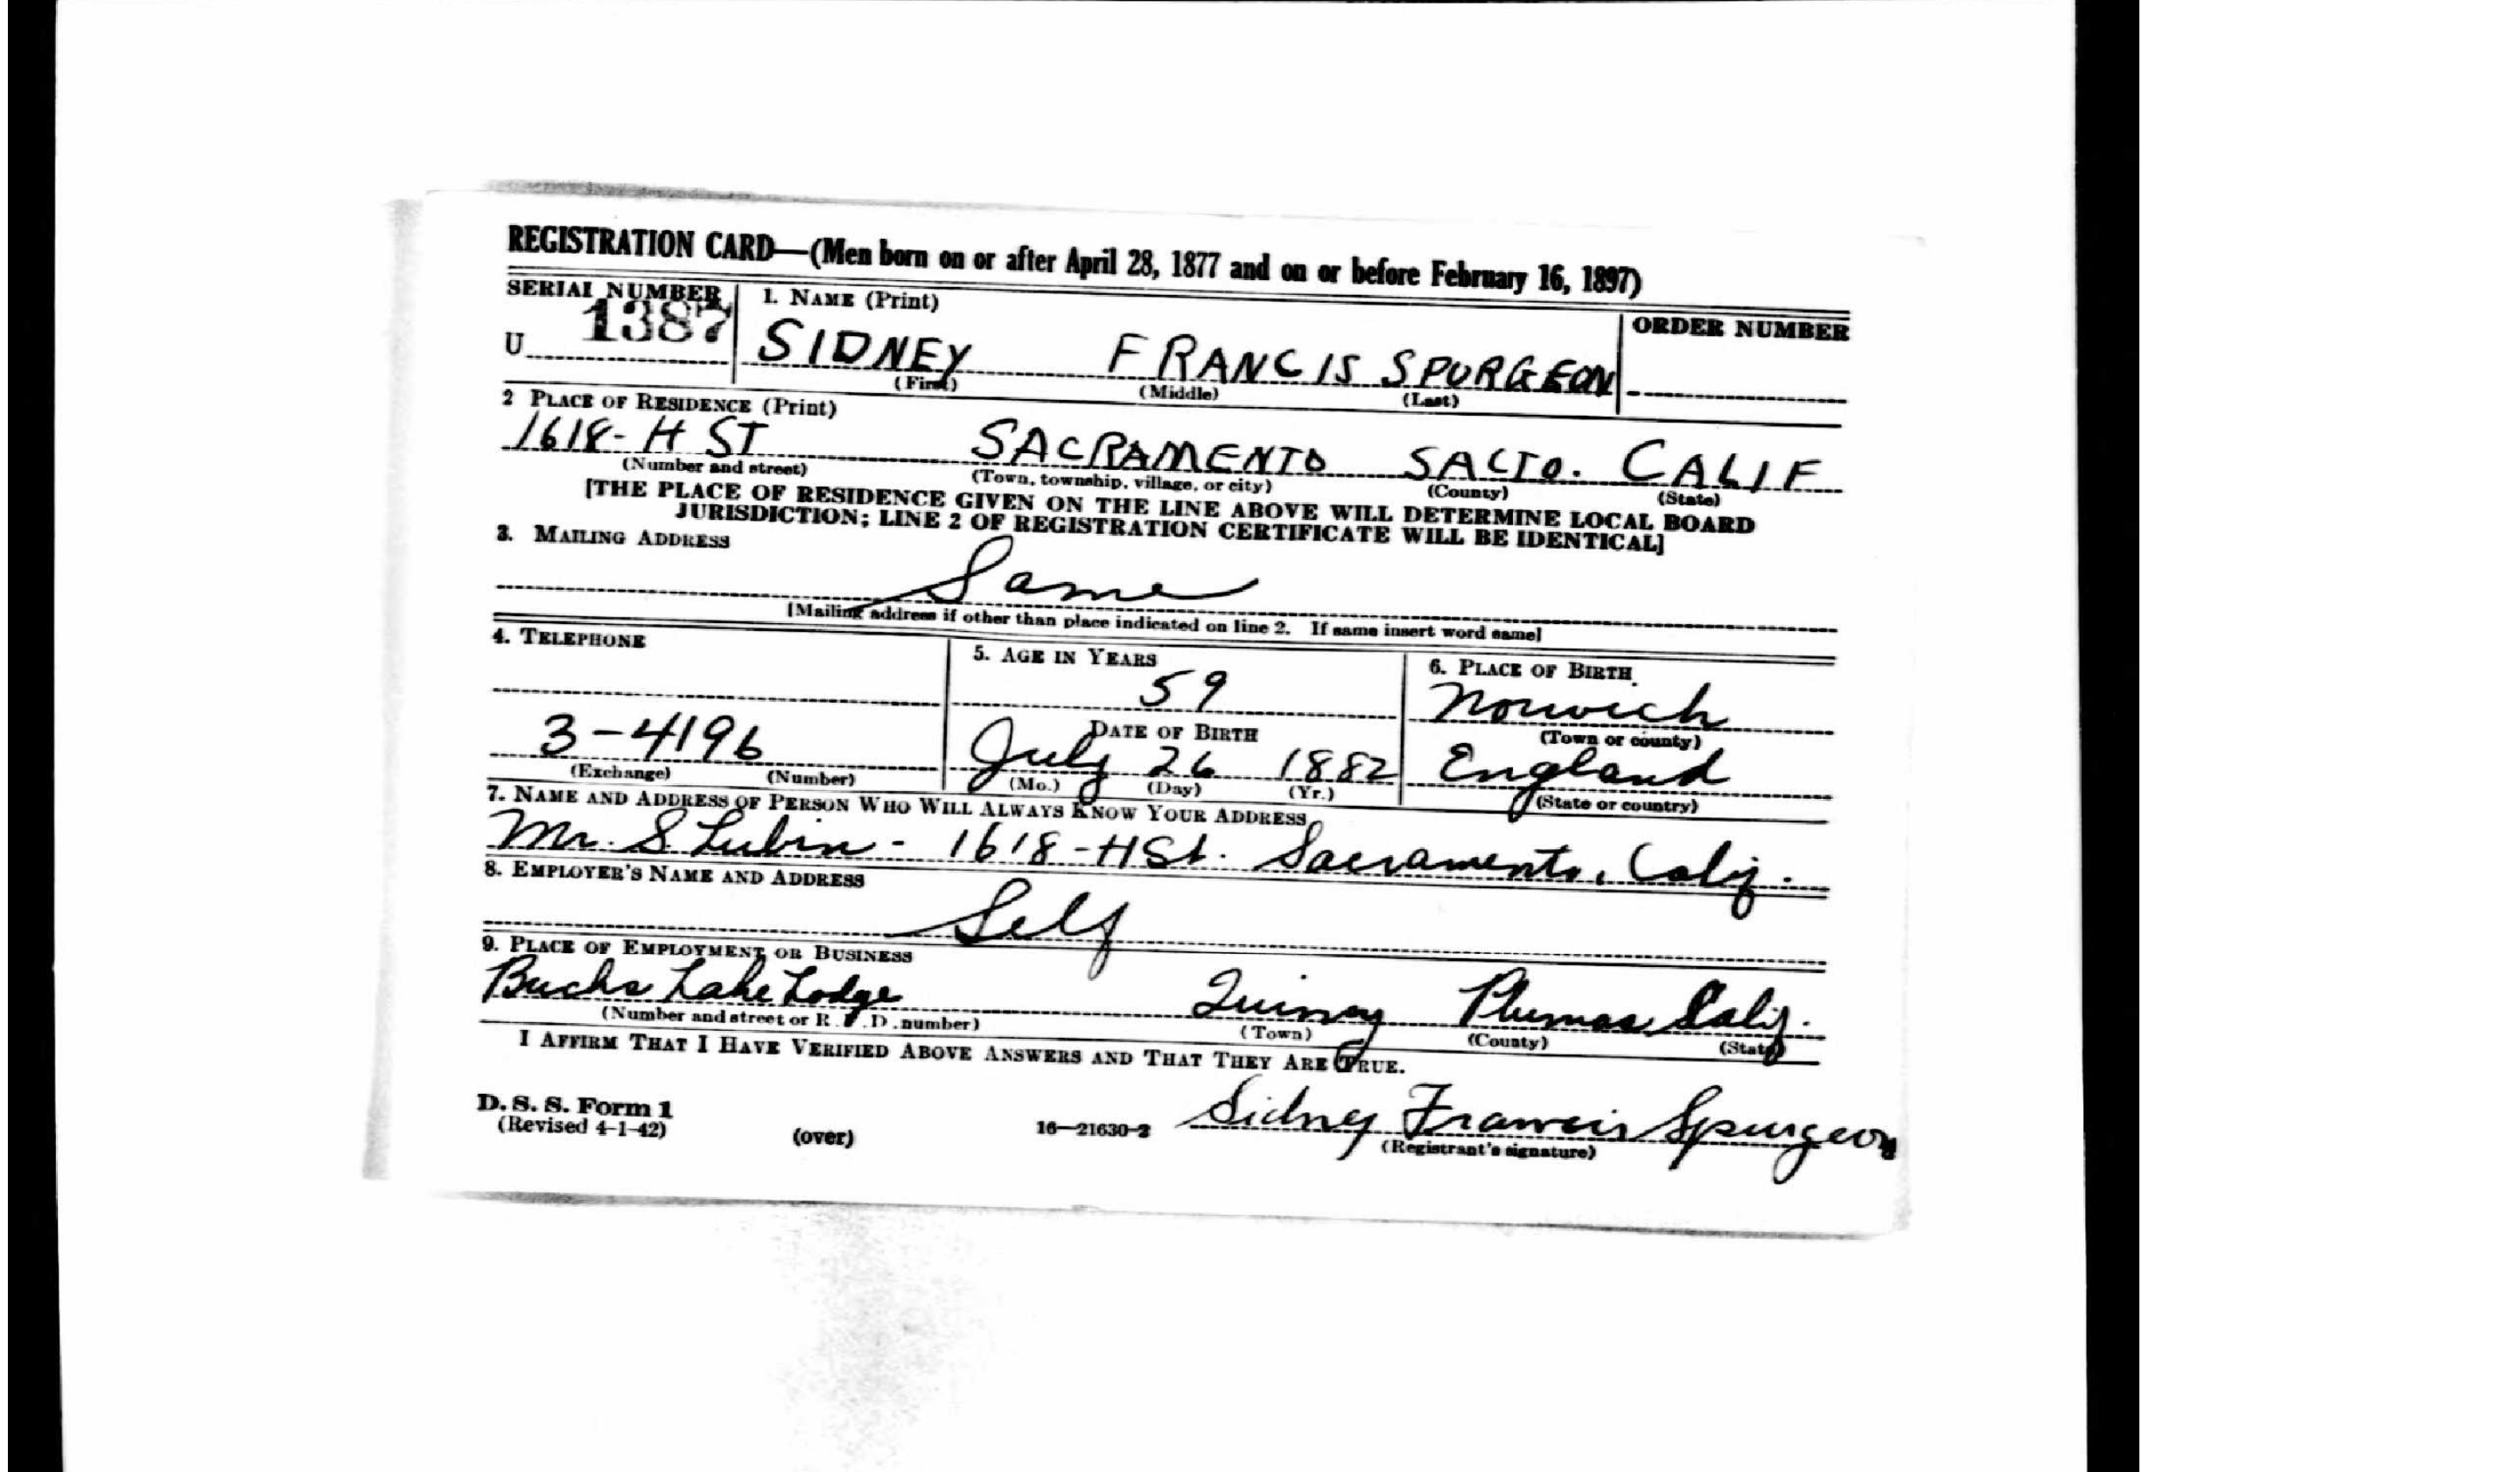 REGISTRATION CARD—(Men born on or after April 28, 1877 and on or before February 16, 1897)
SERIAL NUMBER 1. NAME (Print) ORDER NUMBER
U 1387 SIDNEY FRANCIS SPURGEON
(First) (Middle) (Last)
2 PLACE OF RESIDENCE (Print)
1618- H ST SACRAMENTO SACTO. CALIF
(Number and street) (Town, township, village, or city) (County) (State)
[THE PLACE OF RESIDENCE GIVEN ON THE LINE ABOVE WILL DETERMINE LOCAL BOARD
JURISDICTION; LINE 2 OF REGISTRATION CERTIFICATE WILL BE IDENTICAL]
3. MAILING ADDRESS
Same
[Mailing address if other than place indicated on line 2. If same insert word same]
4. TELEPHONE 5. AGE IN YEARS 6. PLACE OF BIRTH
59 Norwich
DATE OF BIRTH (Town or county)
3-4196 July 26 1882 England
(Exchange) (Number) (Mo.) (Day) (Yr.) (State or country)
7. NAME AND ADDRESS OF PERSON WHO WILL ALWAYS KNOW YOUR ADDRESS
Mr. S Lubin - 1618-H St. Sacramento, Calif.
8. EMPLOYER'S NAME AND ADDRESS
Self
9. PLACE OF EMPLOYMENT OR BUSINESS
Bucks Lake Lodge Quincy Plumas Calif.
(Number and street or R. F. D. number) (Town) (County) (State)
I AFFIRM THAT I HAVE VERIFIED ABOVE ANSWERS AND THAT THEY ARE TRUE.
D. S. S. Form 1
(Revised 4-1-42) (over) 16—21630-2 Sidney Francis Spurgeon
(Registrant's signature)